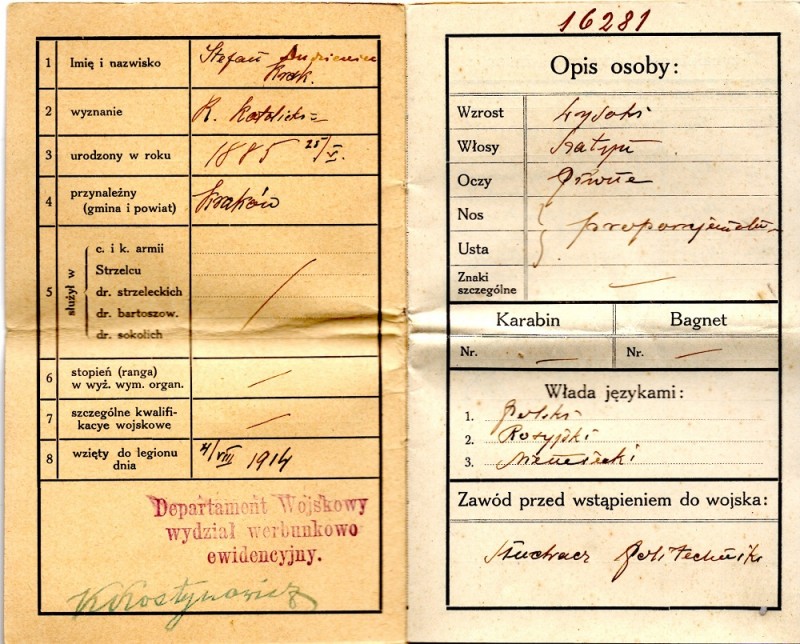 1 Imię i nazwisko Stefan
Krak.
2 wyznanie R. Katolicki
3 urodzony w roku 1885 25/V.
4 przynależny
(gmina i powiat) Kraków
5 służył w
c. i k. armii
Strzelcu
dr. strzeleckich
dr. bartoszow.
dr. sokolich
6 stopień (ranga)
w wyż. wym. organ. —
7 szczególne kwalifi-
kacye wojskowe —
8 wzięty do legionu
dnia 4/VIII 1914
Departament Wojskowy
wydział werbunkowo
ewidencyjny.
16281
Opis osoby:
Wzrost wysoki
Włosy szatyn
Oczy piwne
Nos
Usta
Znaki
szczególne —
Karabin Bagnet
Nr. — Nr. —
Włada językami:
1. Polski
2. Rosyjski
3. Niemiecki
Zawód przed wstąpieniem do wojska:
Słuchacz Politechniki